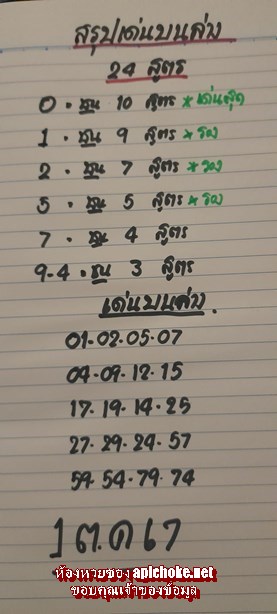 สรุปเด่นบนล่าง
24 สูตร
0 • ชน 10 สูตร * เด่นสุด
1 • ชน 9 สูตร * รอง
2 • ชน 7 สูตร * รอง
5 • ชน 5 สูตร * รอง
7 • ชน 4 สูตร
9-4 • ชน 3 สูตร
เด่นบนล่าง
01-02-05-07
04-09-12-15
17-19-14-25
27-29-24-57
59-54-79-74
1 ต.ค 67
ห้องหวยซอง apichoke.net
ขอบคุณเจ้าของข้อมูล